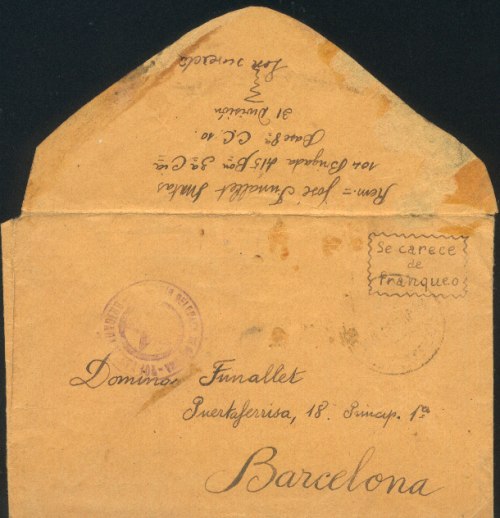 Rem.= José Funallet Matas
104 Brigada 415 Bon 3a Cia
Base 8a C.C. 10.
31 División
Se carece
de
franqueo
Domingo Funallet
Puertaferrisa, 18. Princip. 1ª
Barcelona